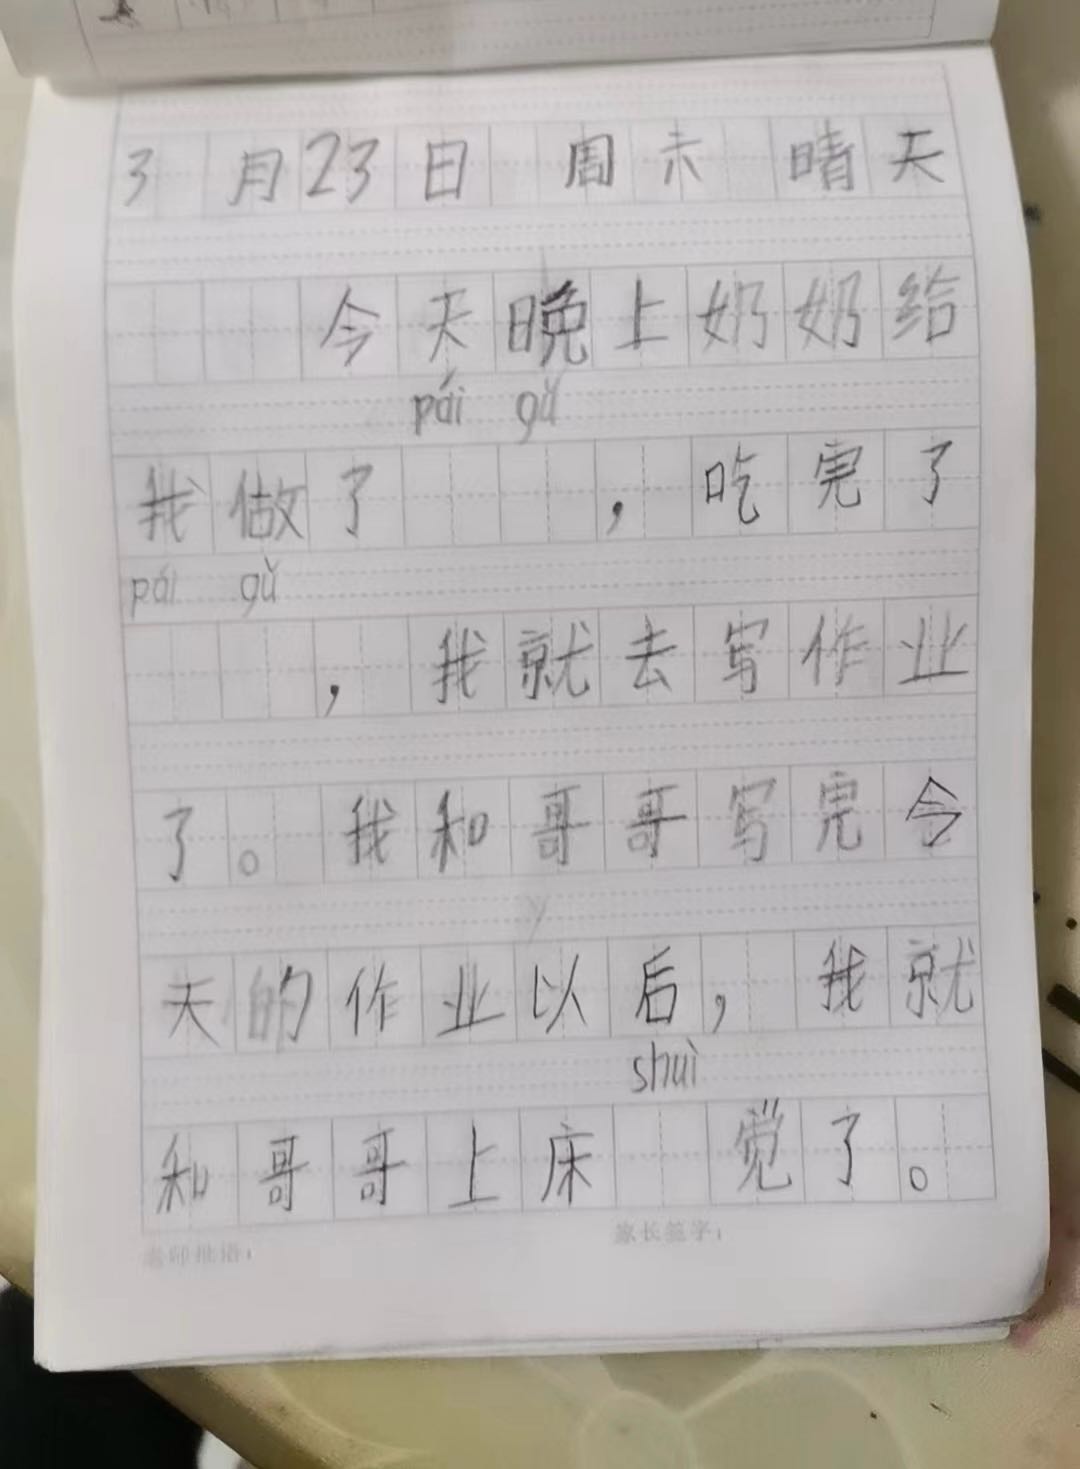 3月23日 周末 晴天
今天晚上奶奶给
pái gǔ
我做了 ，吃完了
pái gǔ
，我就去写作业
了。我和哥哥写完今
天的作业以后，我就
shuì
和哥哥上床 觉了。
家长签字：
老师批语：